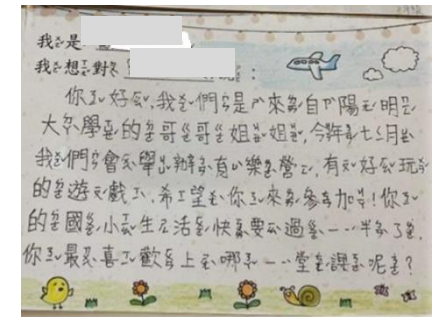 我是
我想對 :
你好,我們是來自陽明
大學的哥哥姐姐,今年七月
我們會舉辦育樂營,有好玩
的遊戲,希望你來參加!你
的國小生活快要過一半了,
你最喜歡上哪一堂課呢?